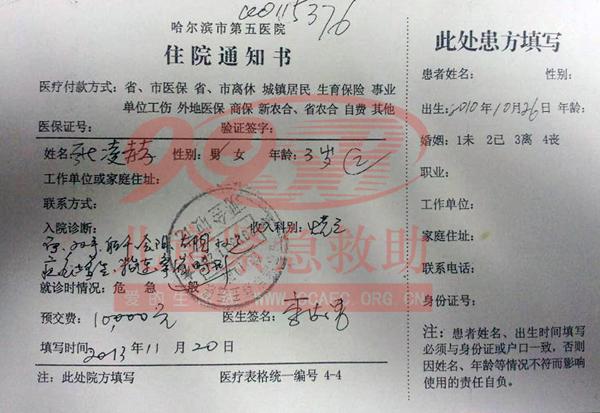 00115376
哈尔滨市第五医院
住院通知书
医疗付款方式：省、市医保 省、市离休 城镇居民 生育保险 事业
单位工伤 外地医保 商保 新农合、省农合 自费 其他
医保证号： 验证签字：
姓名 性别：男 女 年龄：3岁
工作单位或家庭住址：
联系方式：
入院诊断： 收入科别：烧三
就诊时情况：危 急 一般
预交费：10,000元 医生签名：
填写时间 2013年11月20日
注：此处院方填写 医疗表格统一编号 4-4
此处患方填写
患者姓名： 性别：
出生：2010年10月26日 年龄：
婚姻：1未 2已 3离 4丧
职业：
工作单位：
家庭住址：
联系电话：
身份证号：
注：患者姓名、出生时间填写
必须与身份证或户口一致，否则
因姓名、年龄等情况不符而影响
使用的责任自负。
儿童紧急救助
CCAFC.ORG.CN